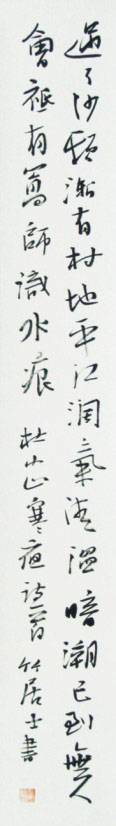 過了沙頭漸有村地平江濶氣清溫暗潮已到無人
會祇有篙師識水痕 杜小山寒夜詩 竹居士書